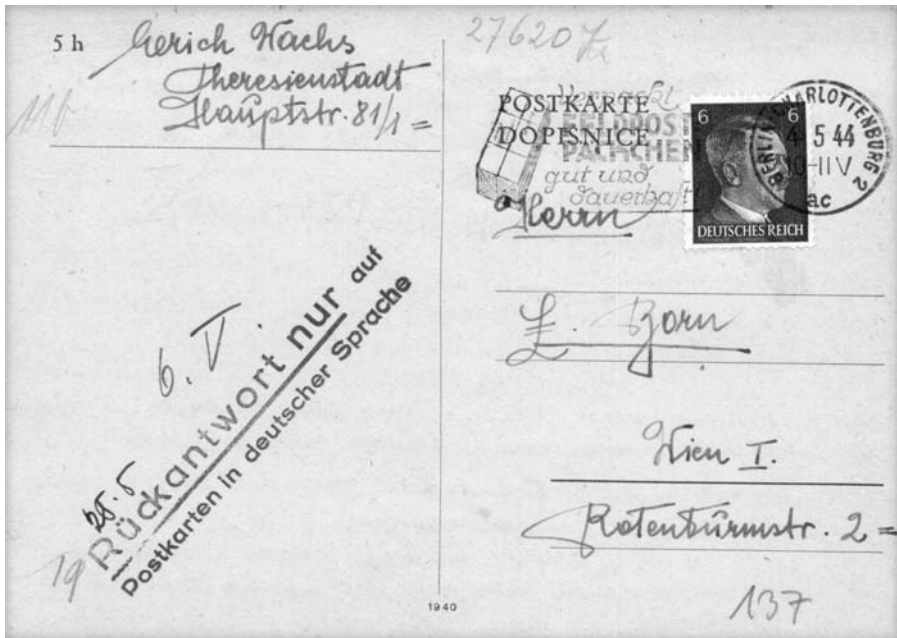 5 h
Gerich Wachs
Theresienstadt
Hauptstr. 81/1 =
11b
27620
POSTKARTE
DOPISNICE
Verpackt
FELDPOST
PÄCKCHEN
gut und
dauerhaft
6 6
DEUTSCHES REICH
BERLIN-CHARLOTTENBURG 2
4 5 44
10-11 V
ac
Herrn
E. Born
Wien I.
Rotenturmstr. 2 =
137
6. V.
25.5
19
Rückantwort nur auf
Postkarten in deutscher Sprache
1940